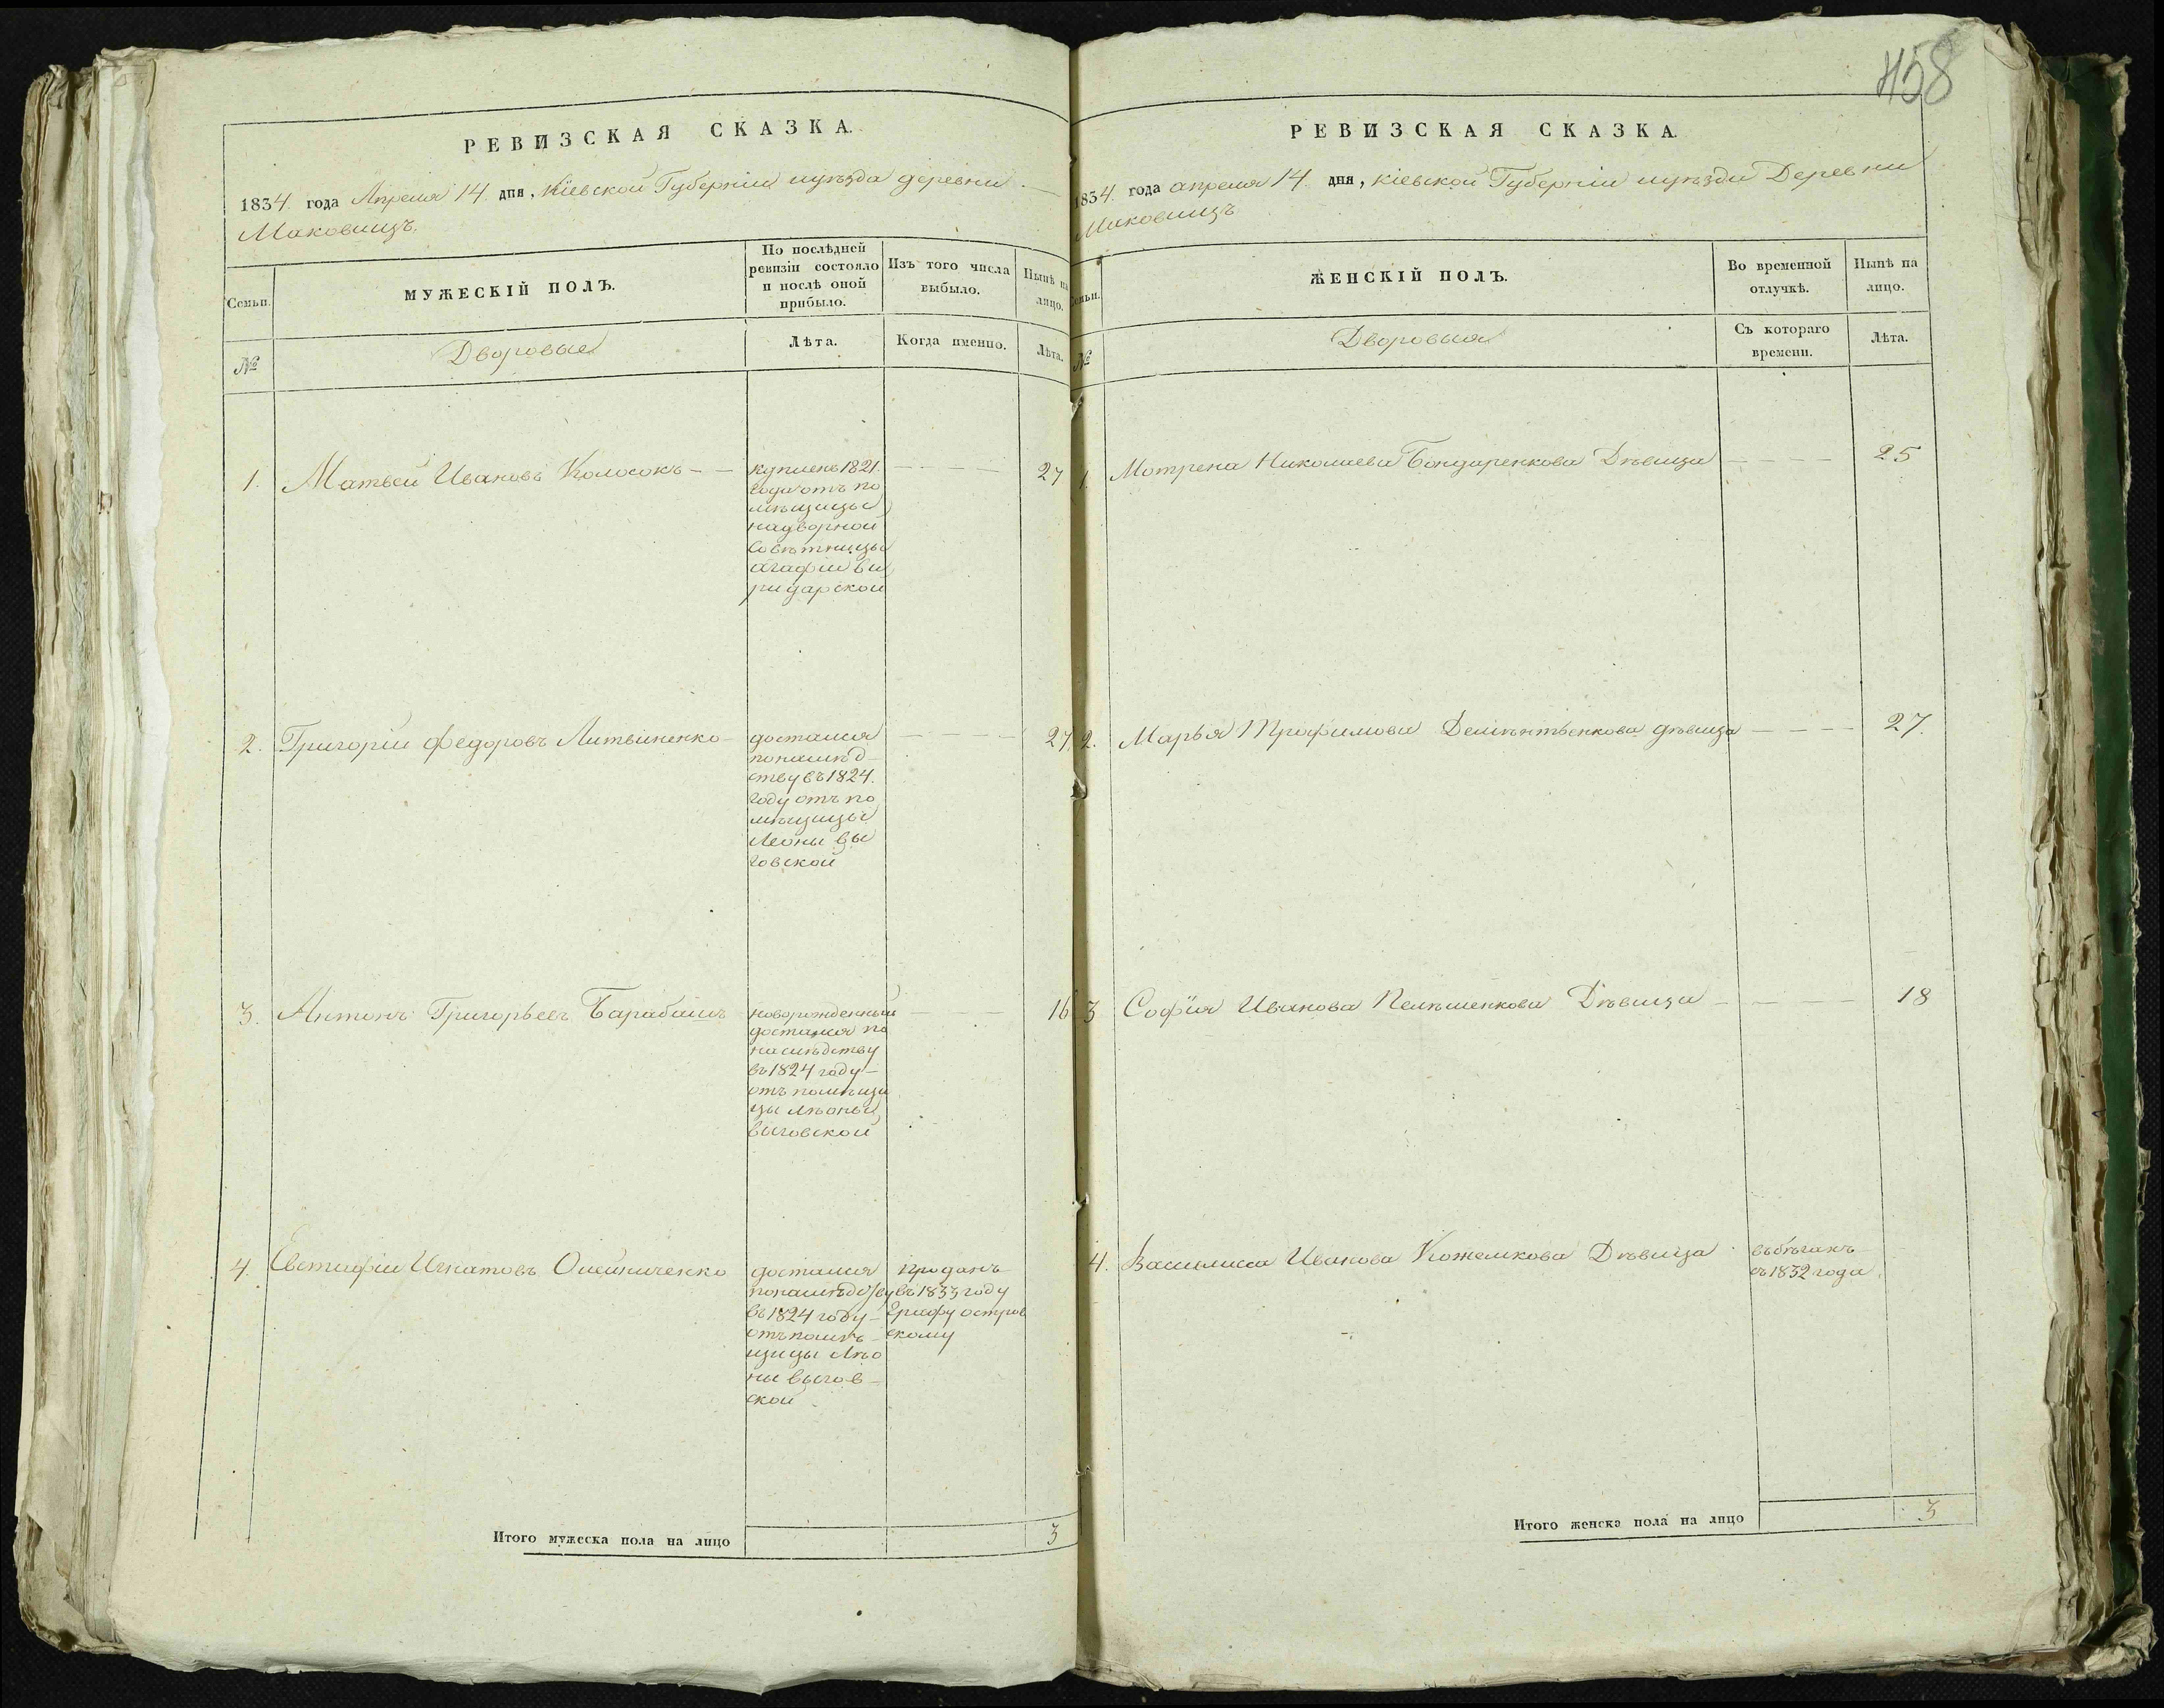 458
РЕВИЗСКАЯ СКАЗКА.
1834. года Апреля 14. дня, Кіевской Губерніи и уѣзда деревни
Маковищъ.
Семьи.
МУЖЕСКІЙ ПОЛЪ.
По послѣдней
ревизіи состояло
и послѣ оной
прибыло.
Изъ того числа
выбыло.
Нынѣ на
лицо.
№
Дворовые
Лѣта.
Когда именно.
Лѣта.
1.
Матвей Ивановъ Колосокъ
купленъ 1821.
года отъ по
мѣщицы
надворной
Совѣтницы
Агафіи Ви
ридарской
27
2.
Григорій Федоровъ Литвиненко
достался
по наслѣд
ству въ 1824.
году отъ по
мѣщицы
Леоны Вы
говской
27.
3.
Антонъ Григорьевъ Барабашъ
новорожденный
достался по
наслѣдству
въ 1824 году
отъ помѣщи
цы Лѣоны
Выговской
16
4.
Евстафій Игнатовъ Олейниченко
достался
по наслѣдству
въ 1824 году
отъ помѣ
щицы Лѣо
ны Выгов
ской
проданъ
въ 1833 году
Графу Остров
скому
Итого мужеска пола на лицо
3
РЕВИЗСКАЯ СКАЗКА.
1834. года апреля 14. дня, Кіевской Губерніи и уѣзда Деревни
Маковищъ
Семьи.
ЖЕНСКІЙ ПОЛЪ.
Во временной
отлучкѣ.
Нынѣ на
лицо.
№
Дворовыя
Съ котораго
времени.
Лѣта.
1.
Мотрена Николаева Бондаренкова Дѣвица
25
2.
Марья Трофимова Дементьенкова дѣвица
27.
3
Софія Иванова Пелѣшенкова Дѣвица
18
4.
Василиса Иванова Кожемкова Дѣвица
въ бѣгахъ
съ 1832 года
Итого женска пола на лицо
3